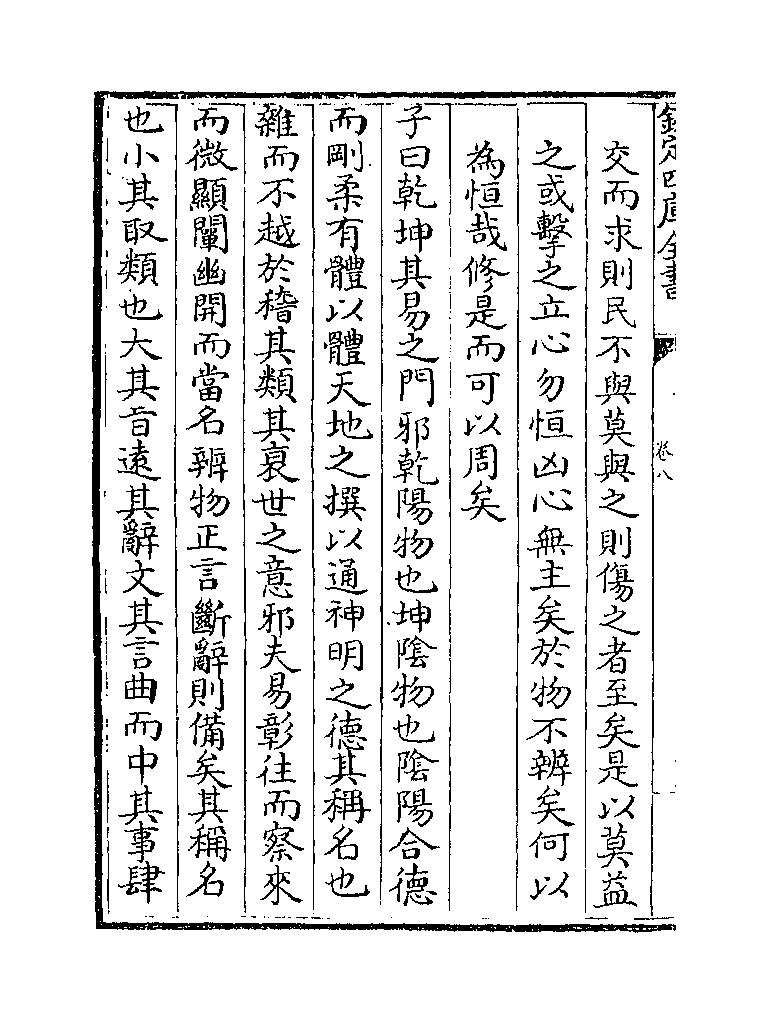 欽定四庫全書
卷八
交而求則民不與莫與之則傷之者至矣是以莫益
之或擊之立心勿恒凶心無主矣於物不辨矣何以
為恒哉修是而可以周矣
子曰乾坤其易之門邪乾陽物也坤陰物也陰陽合德
而剛柔有體以體天地之撰以通神明之德其稱名也
雜而不越於稽其類其衰世之意邪夫易彰往而察來
而微顯闡幽開而當名辨物正言斷辭則備矣其稱名
也小其取類也大其旨遠其辭文其言曲而中其事肆